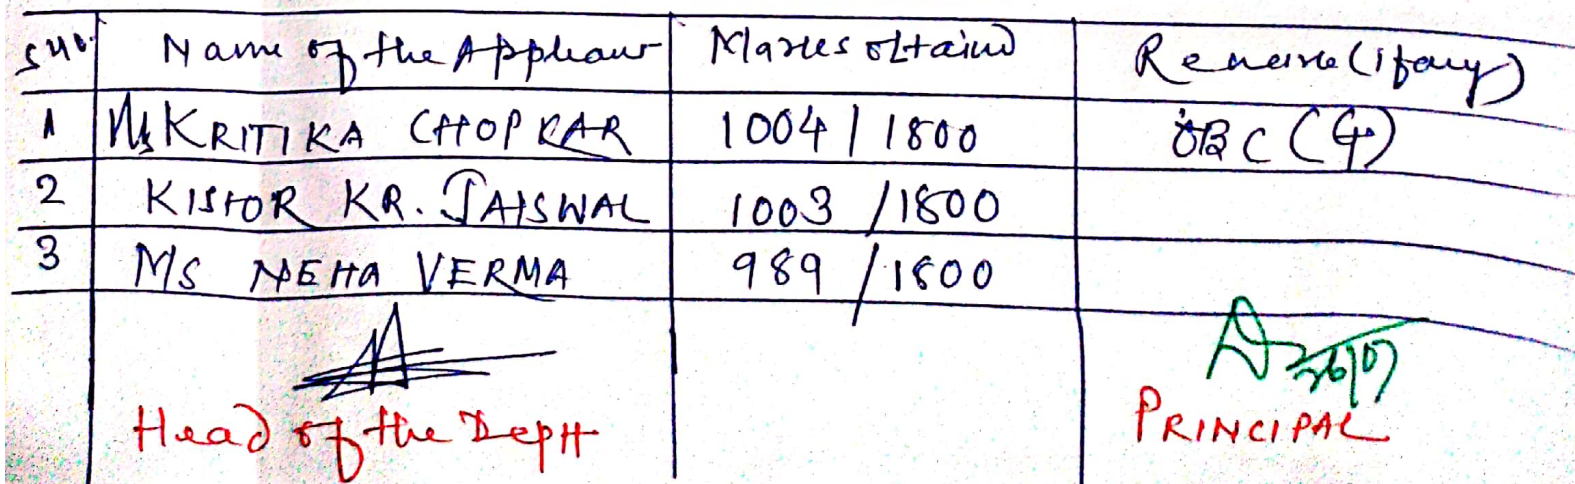 S.No. Name of the Applicant Marks obtained Remark (if any)
1 Ms KRITIKA CHOPKAR 1004 / 1800 OBC
2 KISHOR KR. JAISWAL 1003 / 1800
3 Ms NEHA VERMA 989 / 1800
26/07
Head of the Deptt PRINCIPAL